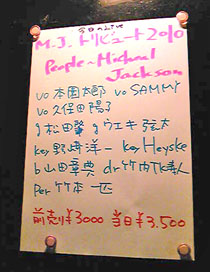 今日のLive
M.J. トリビュート2010
People~Michael
Jackson
vo 本園太郎 vo SAMMY
vo 久保田陽子
g 松田肇 g ウエキ弦太
key 野崎洋一 key Heyske
b 山田章典 dr 竹内
Per 竹本一匹
前売り¥3000 当日¥3.500